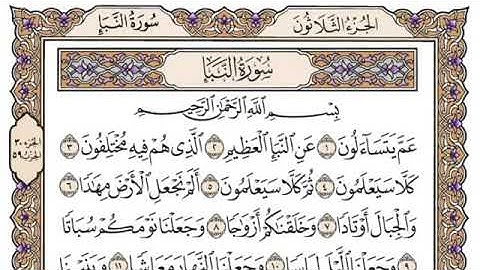 الجزء الثلاثون سورة النبإ
سُورَةُ النَّبَإِ
بِسْمِ ٱللَّهِ ٱلرَّحْمَٰنِ ٱلرَّحِيمِ
عَمَّ يَتَسَآءَلُونَ ١ عَنِ ٱلنَّبَإِ ٱلْعَظِيمِ ٢ ٱلَّذِى هُمْ فِيهِ مُخْتَلِفُونَ ٣
كَلَّا سَيَعْلَمُونَ ٤ ثُمَّ كَلَّا سَيَعْلَمُونَ ٥ أَلَمْ نَجْعَلِ ٱلْأَرْضَ مِهَٰدًا ٦
وَٱلْجِبَالَ أَوْتَادًا ٧ وَخَلَقْنَٰكُمْ أَزْوَٰجًا ٨ وَجَعَلْنَا نَوْمَكُمْ سُبَاتًا
٩ وَجَعَلْنَا ٱلَّيْلَ لِبَاسًا ١٠ وَجَعَلْنَا ٱلنَّهَارَ مَعَاشًا ١١ وَبَنَيْنَا
الجزء ٣٠
الحزب ٥٩